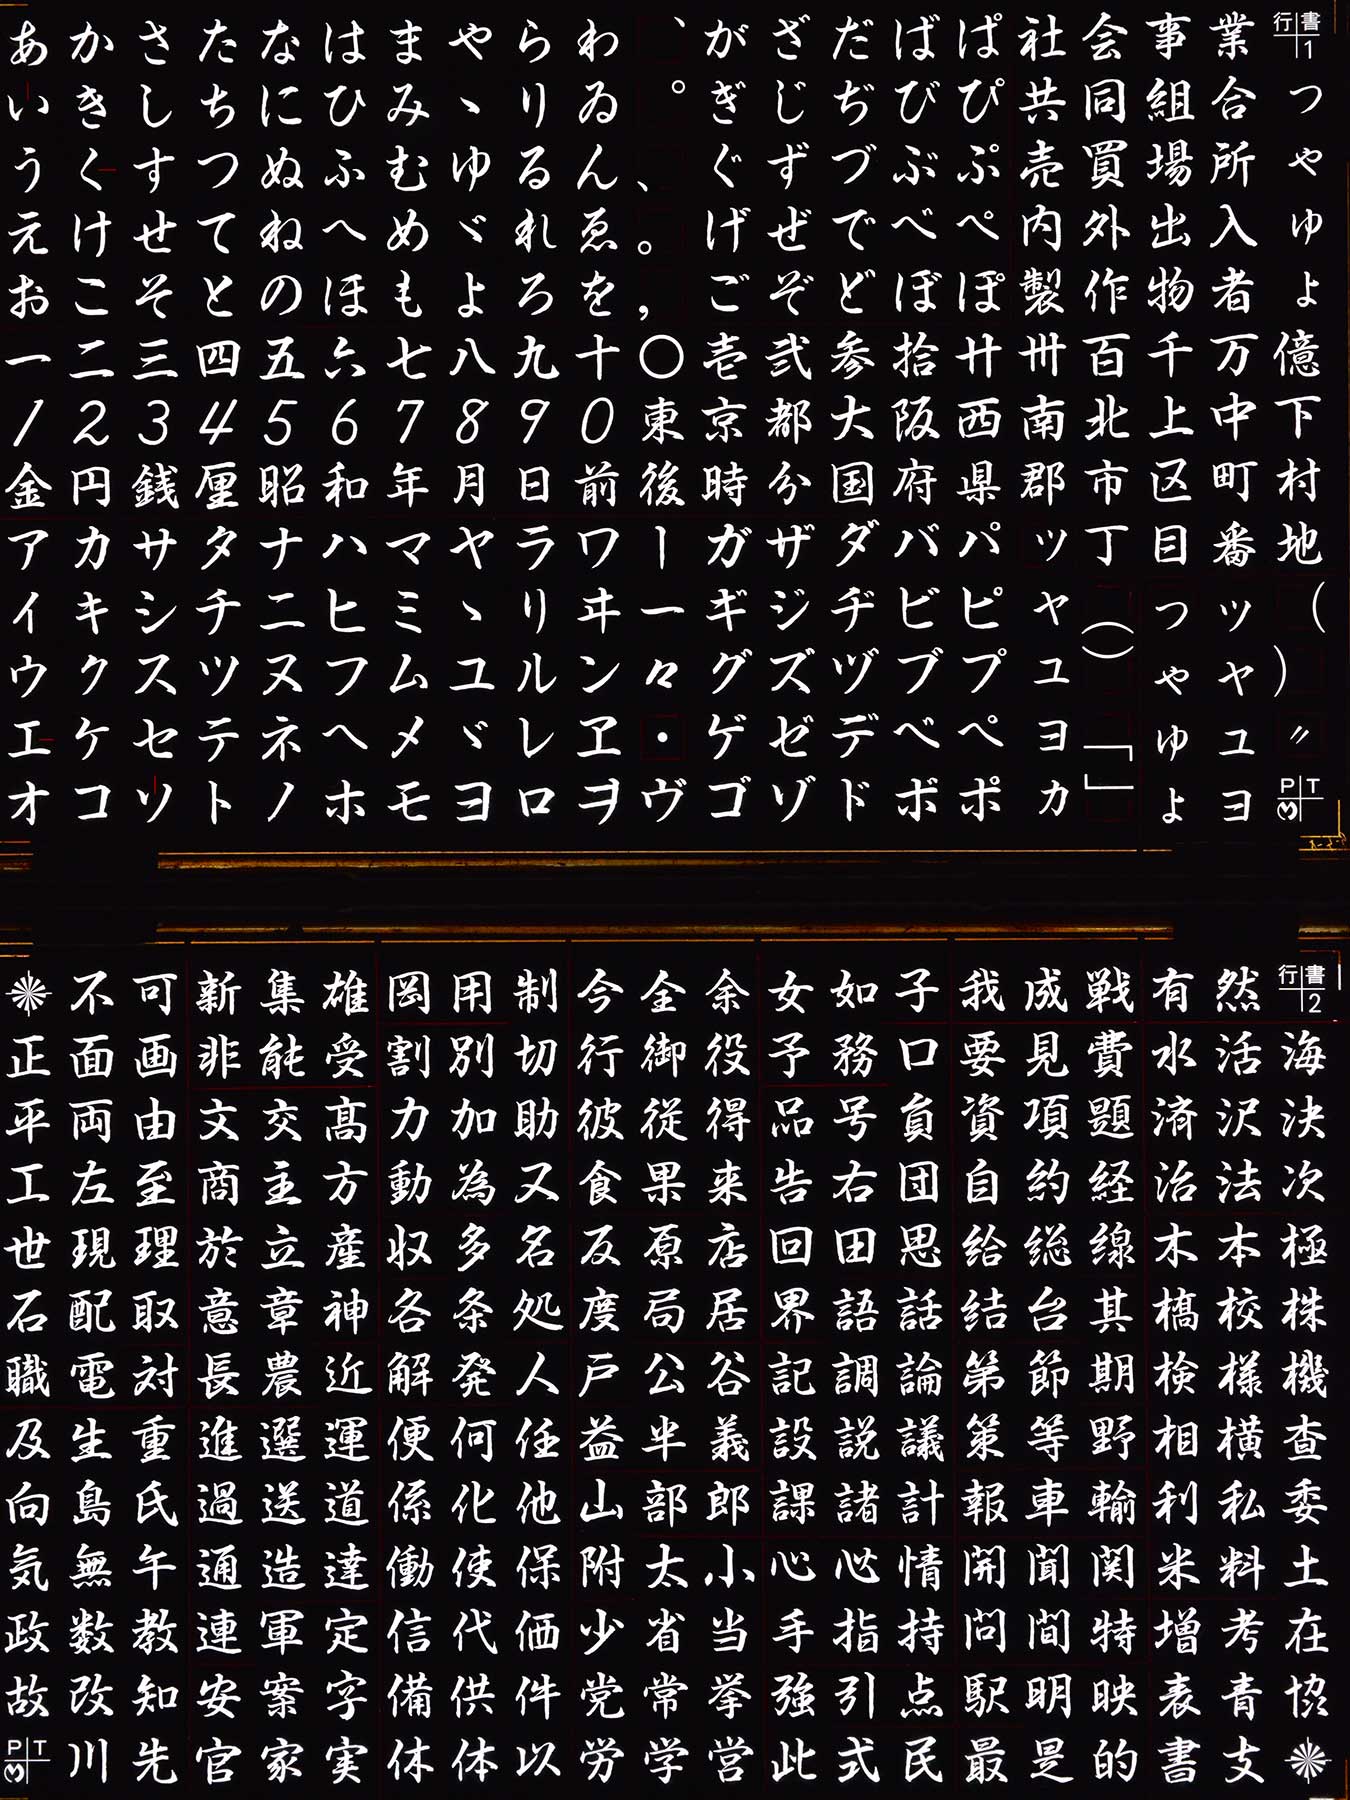 あかさたなはまやらわ、がざだばぱ社会事業行書1
いきしちにひみヽりゐ。ぎじぢびぴ共同組合っ
うくすつぬふむゆるん、ぐずづぶぷ売買場所ゃ
えけせてねへめゞれゑ。げぜでべぺ内外出入ゅ
おこそとのほもよろを,ごぞどぼぽ製作物者ょ
一二三四五六七八九十〇壱弐参拾廿卅百千万億
1234567890東京都大阪西南北上中下
金円銭厘昭和年月日前後時分国府県郡市区町村
アカサタナハマヤラワーガザダバパッ丁目番地
イキシチニヒミヽリヰ一ギジヂビピャ(っッ(
ウクスツヌフムユルン々グズヅブプュ)ゃャ)
エケセテネヘメヾレヱ・ゲゼデベペョ「ゅュ〃
オコソトノホモヨロヲヴゴゾドボポヵ」ょョPT
不可新集雄岡用制今全余女如子我成戦有然行書2
正面画非能受割別切行御役予務口要見費水活海
平両由文交高力加助彼従得品号員資項題済沢決
工左至商主方動為又食果来告右団自約経治法次
世現理於立産収多名反原店回田思給総線木本極
石配取意章神各条処度局居界語話結台其橋校株
職電対長農近解発人戸公谷記調論第節期検様機
及生重進選運便何任益半義設説議策等野相横査
向島氏過送道係化他山部郎課諸計報車輸利私委
気無午通造達働使保附太小心必情開聞関米料土
政数教連軍定信代価少省当手指持問間特増考在
故改知安案字備供件党常挙強引点駅明映表青協
PT川先官家実休体以労学営此式民最是的書支